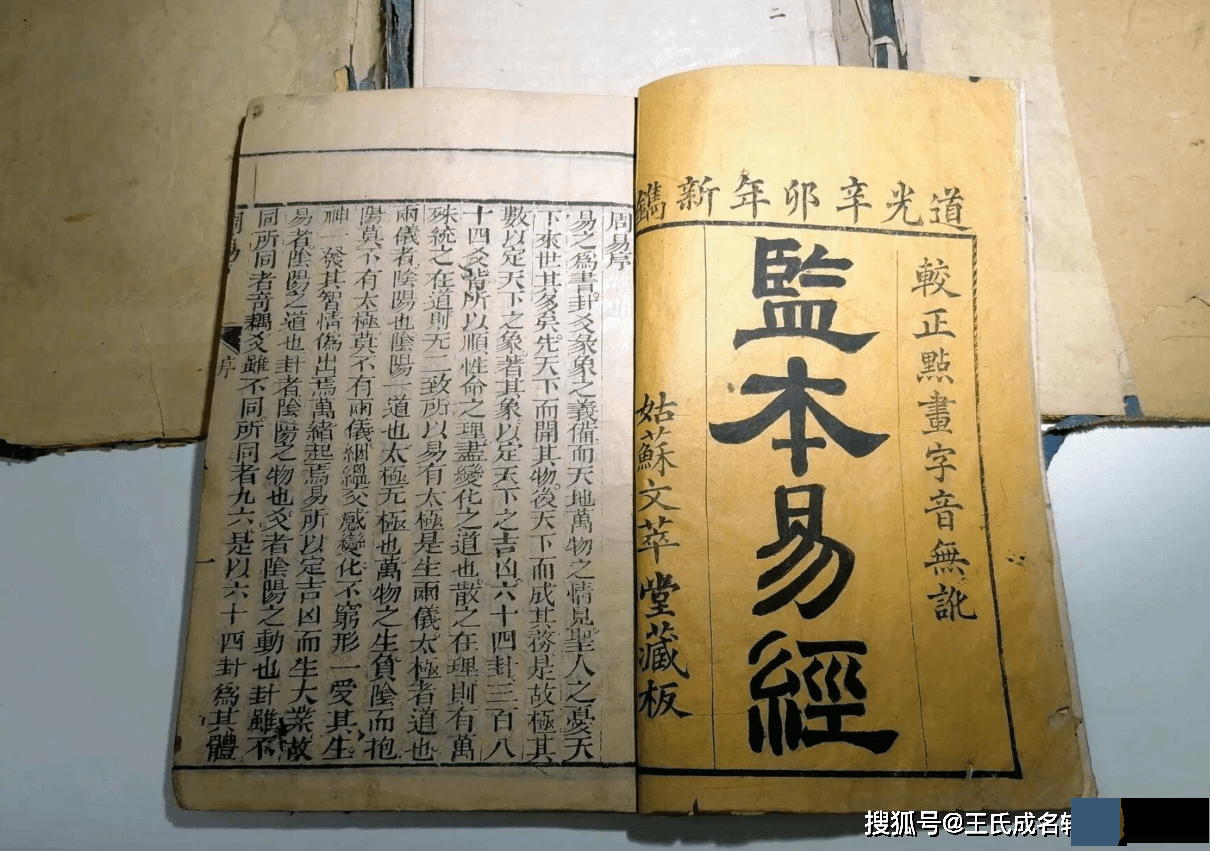 道光辛卯年新鐫
較正點畫字音無訛
監本易經
姑蘇文萃堂藏板
周易序
易之爲書卦爻彖象之義備而天地萬物之情見聖人之憂天
下來世其多矣先天下而開其物後天下而成其務是故極其
數以定天下之象著其象以定天下之吉凶六十四卦三百八
十四爻皆所以順性命之理盡變化之道也散之在理則有萬
殊統之在道則无二致所以易有太極是生兩儀太極者道也
兩儀者陰陽也陰陽一道也太極无極也萬物之生負陰而抱
陽莫不有太極莫不有兩儀絪縕交感變化不窮形一受其生
神一發其智情僞出焉萬緒起焉易所以定吉凶而生大業故
易者陰陽之道也卦者陰陽之物也爻者陰陽之動也卦雖不
同所同者奇耦爻雖不同所同者九六是以六十四卦爲其體
周易 序 一
搜狐号@王氏成名